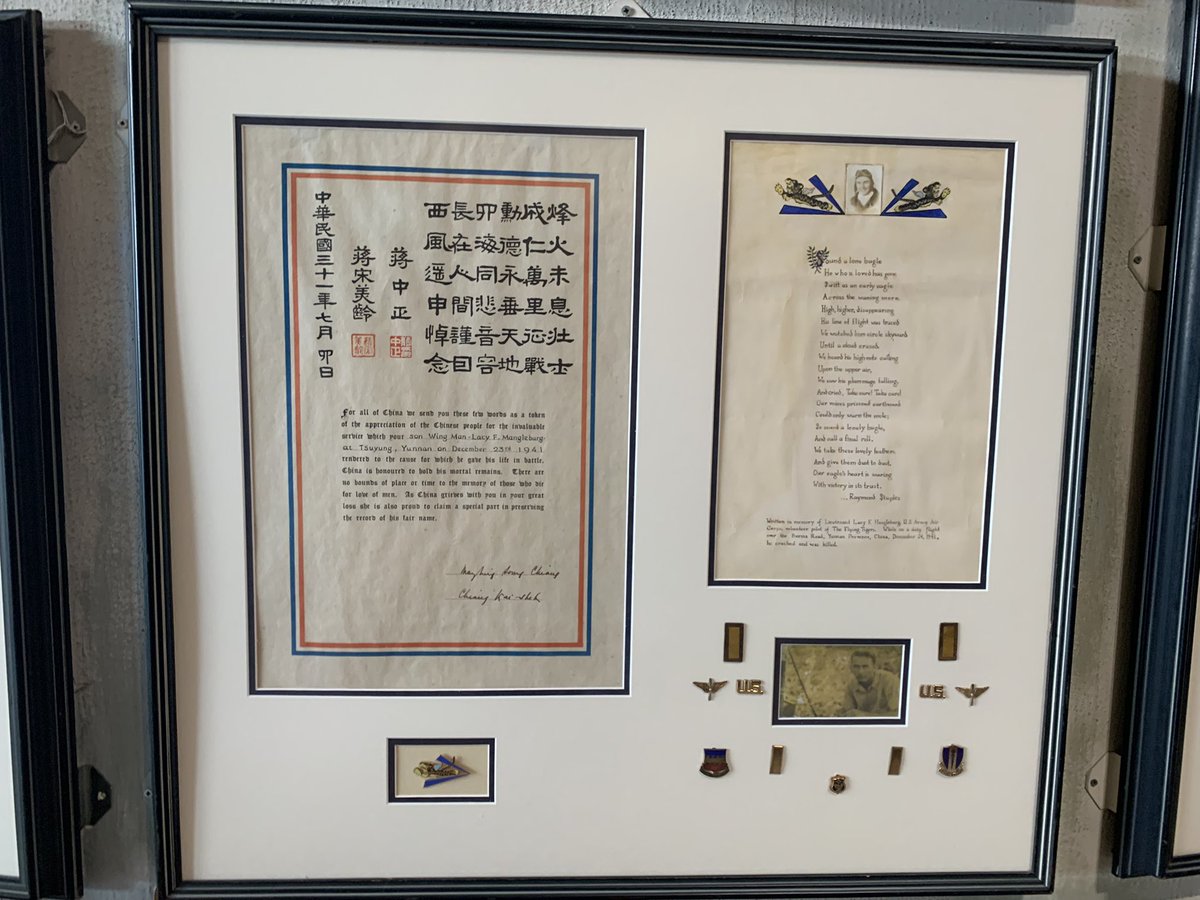 烽火未息壯士
成仁萬里征戰
勳德永垂天地
四海同悲音容
長在人間謹囙
西風遥申悼念
蔣中正
蔣宋美齡
中華民國三十一年七月四日
For all of China we send you these few words as a token
of the appreciation of the Chinese people for the invaluable
service which your son Wing Man-Lacy F. Mangleburg-
at Tsuyung, Yunnan on December 23rd 1941
rendered to the cause for which he gave his life in battle.
China is honoured to hold his mortal remains. There are
no bounds of place or time to the memory of those who die
for love of men. As China grieves with you in your great
loss she is also proud to claim a special part in preserving
the record of his fair name.
Mayling Soong Chiang
Chiang Kai-shek
Sound a lone bugle
He who u loved has gone
Swift as an early eagle
Across the waning moon.
High, higher, disappearing
His line of flight was traced
We watched him circle skyward
Until a cloud erased.
We heard his high note calling
Upon the upper air,
We saw his plummage falling,
And cried, Take care! Take care!
Our voices prisoned earthbound
Could only warn the
So sound a lonely bugle,
And call a final roll.
We take these lovely feathers
And give them dust to dust,
Our eagle's heart is soaring
With victory in its trust.
... Raymond Staples
Written in memory of Lieutenant Lacy F. Mangleburg, U.S. Army Air
Corps, volunteer pilot of The Flying Tigers. While on a duty flight
over the Burma Road, Yunnan Province, China, December 24, 1941,
he crashed and was killed.
U.S.
U.S.